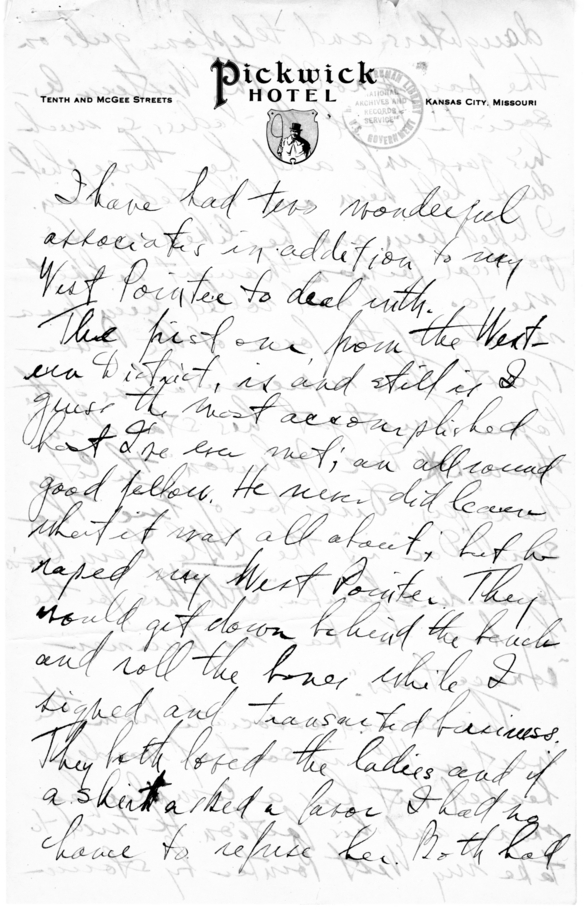 Pickwick
HOTEL
TENTH AND McGEE STREETS
KANSAS CITY, MISSOURI
NATIONAL
ARCHIVES AND
RECORDS
SERVICE
I have had two wonderful
associates in addition to my
West Pointer to deal with.
The first one, from the West-
ern District, is and still is I
guess the most accomplished
I've ever met; an all round
good fellow. He never did learn
what it was all about; but he
raped my West Pointer. They
would get down behind the bench
and roll the bones while I
signed and transacted business.
They both loved the ladies and if
a skirt asked a favor I had no
chance to refuse her. Both had